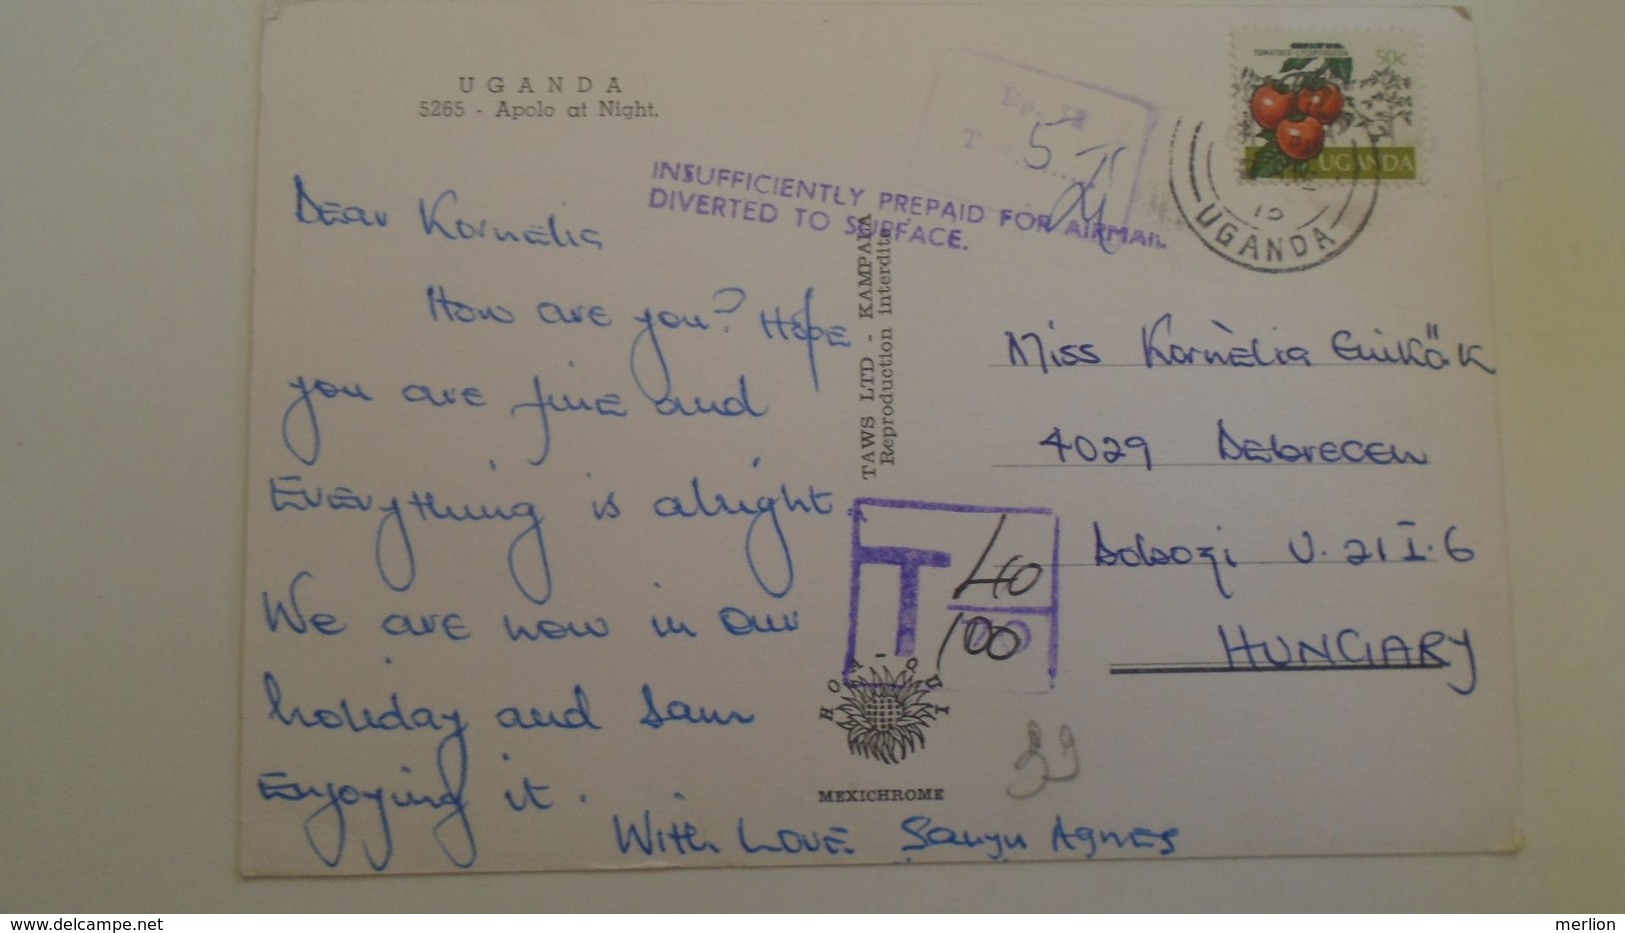 UGANDA
5265 - Apolo at Night.
Dear Kornelia
How are you? Hope
you are fine and
Everything is alright.
We are now in our
holiday and I am
Enjoying it.
With Love. Sanyu Agnes
INSUFFICIENTLY PREPAID FOR AIRMAIL
DIVERTED TO SURFACE.
T 5
TAWS LTD - KAMPALA
Reproduction interdite
50c
UGANDA
UGANDA
Miss Kornèlia
4029 Debrecen
U. 21 I. 6
HUNGARY
T 40
100
MEXICHROME
39
merlion